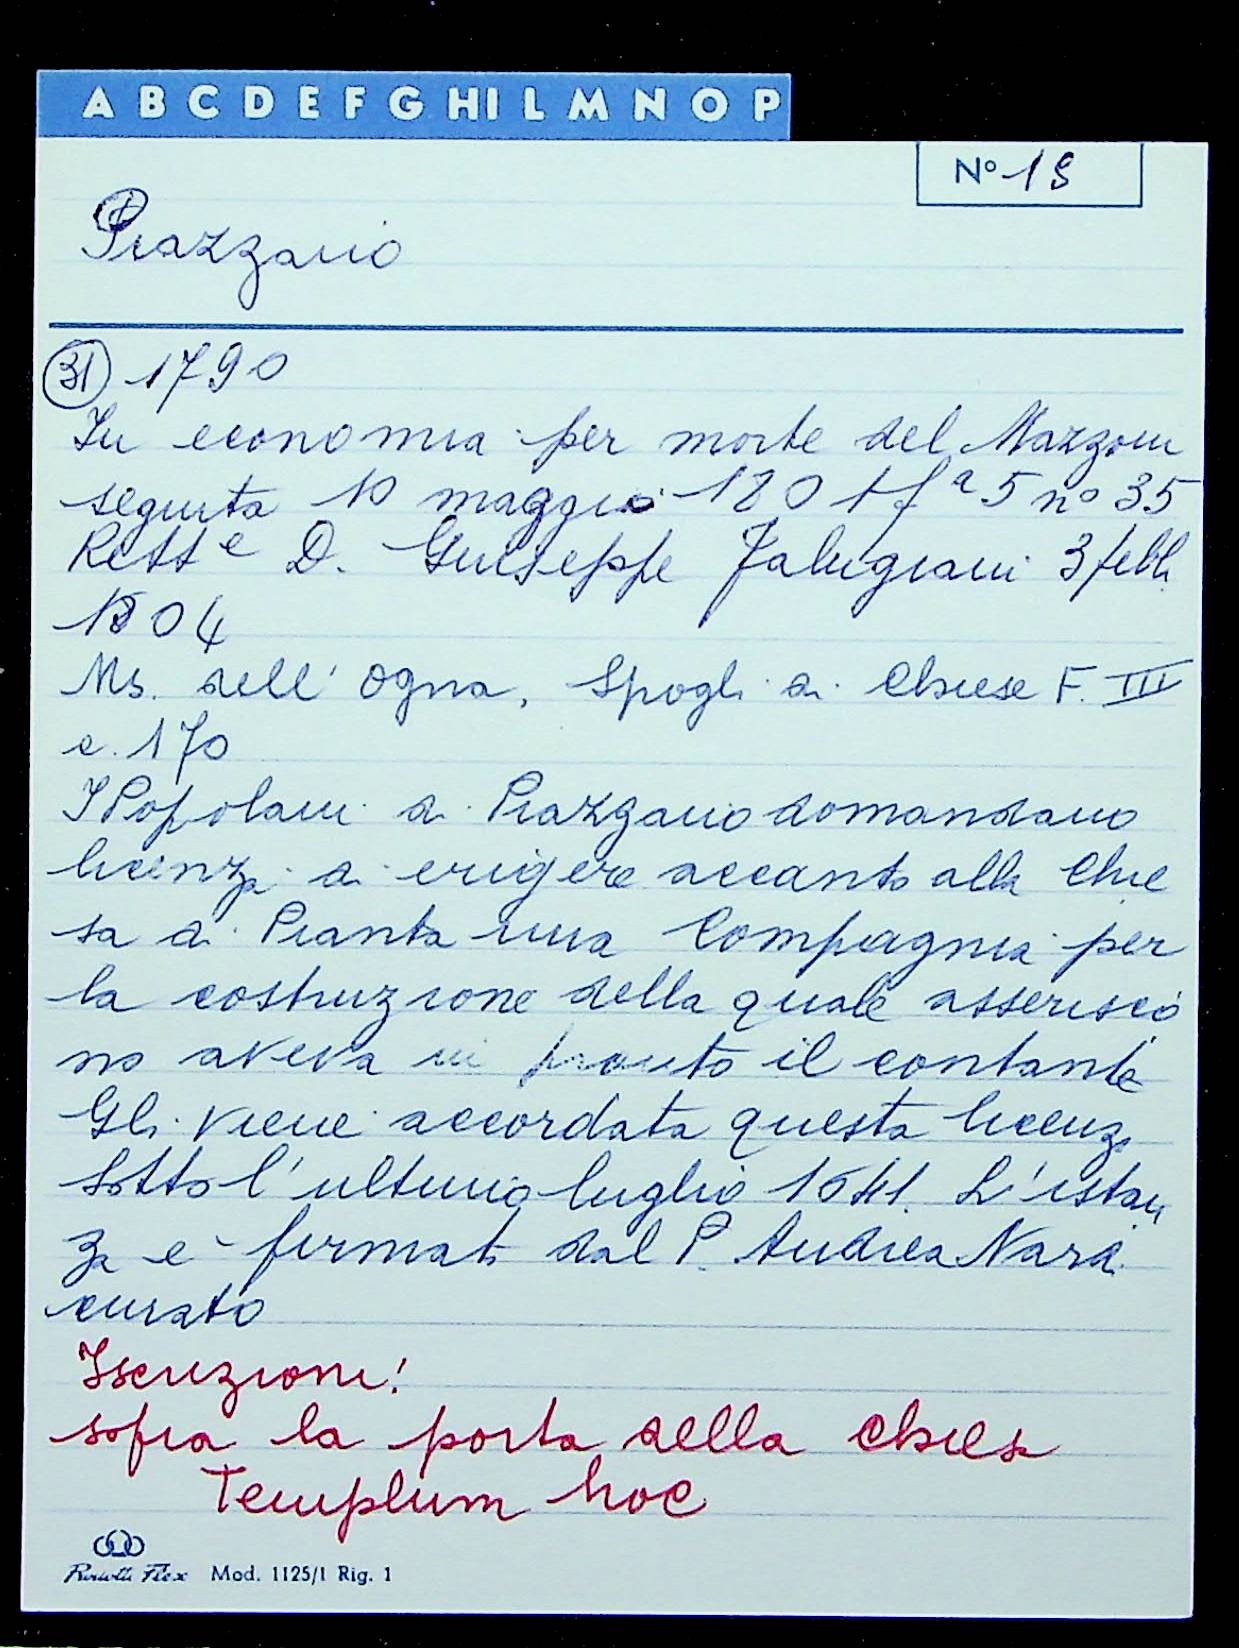 A B C D E F G HI L M N O P
Nº 19
Piazzano
31 1790
In economia per morte del Mazzoni
seguita 10 maggio 1801 fª 5 nº 35
Rett e D. Giuseppe Falugiani 3 febb.
1804
Ms. dell' Ogna, Spogli di Chiese F. III
c. 170
I Popolani di Piazzano domandano
licenza di erigere accanto alla Chie
sa di Pianta una Compagnia per
la costruzione della quale asserisco
no aveva in pronto il contante
Gli viene accordata questa licenz
sotto l'ultimo luglio 1641. L'istan
za e' firmata dal P. Andrea Nardi
curato
Iscrizioni!
sopra la porta della chiesa
Templum hoc
Mod. 1125/1 Rig. 1